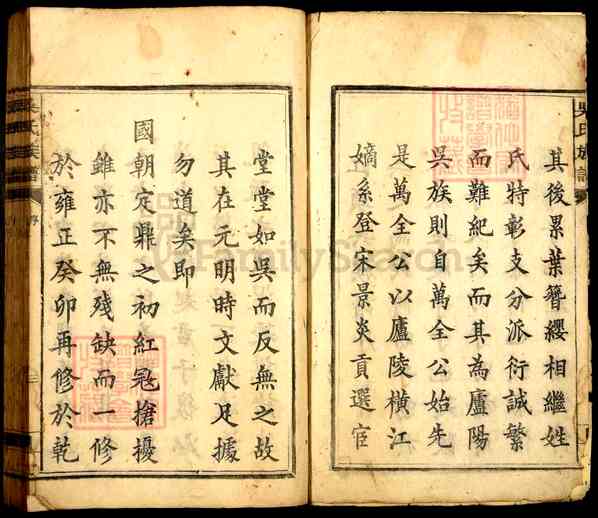 吳氏族譜
其後累葉簪纓相繼姓
氏特彰支分派衍誠繁
而難紀矣而其為廬陽
吳族則自萬全公始先
是萬全公以廬陵橫江
嫡系登宋景炎貢選宦
堂堂如吳而反無之故
其在元明時文獻足據
勿道矣即
國朝定鼎之初紅冠搶擾
雖亦不無殘缺而一修
於雍正癸卯再修於乾
吳氏族譜
FamilySearch